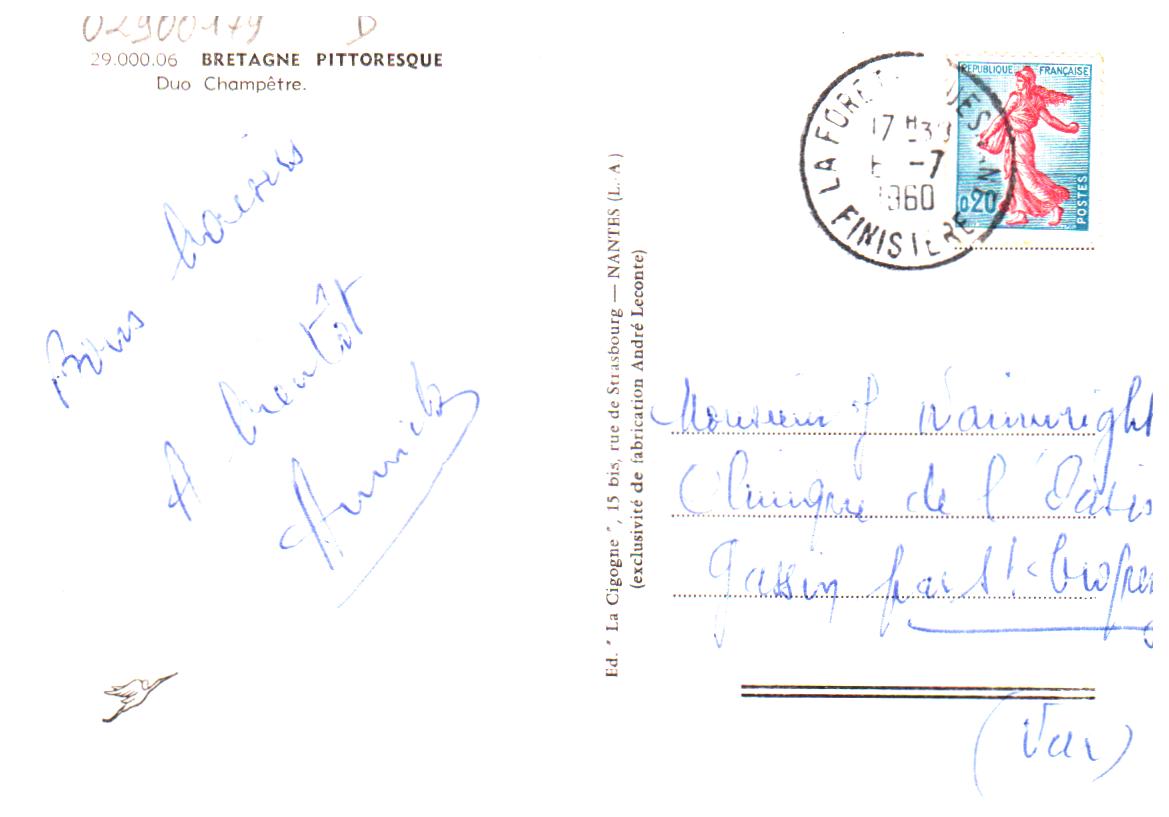 02900179 D
29.000.06 BRETAGNE PITTORESQUE
Duo Champêtre.
Bons baisers
A bientôt
Annick
Ed. " La Cigogne ", 15 bis, rue de Strasbourg — NANTES (L.-A.)
(exclusivité de fabrication André Leconte)
LA FORET
17 H30
-7
1960
FINISTERE
REPUBLIQUE FRANÇAISE
0,20
POSTES
Monsieur J Wainwright
Clinique de l'Oasis
Gassin par St-Tropez
(Var)